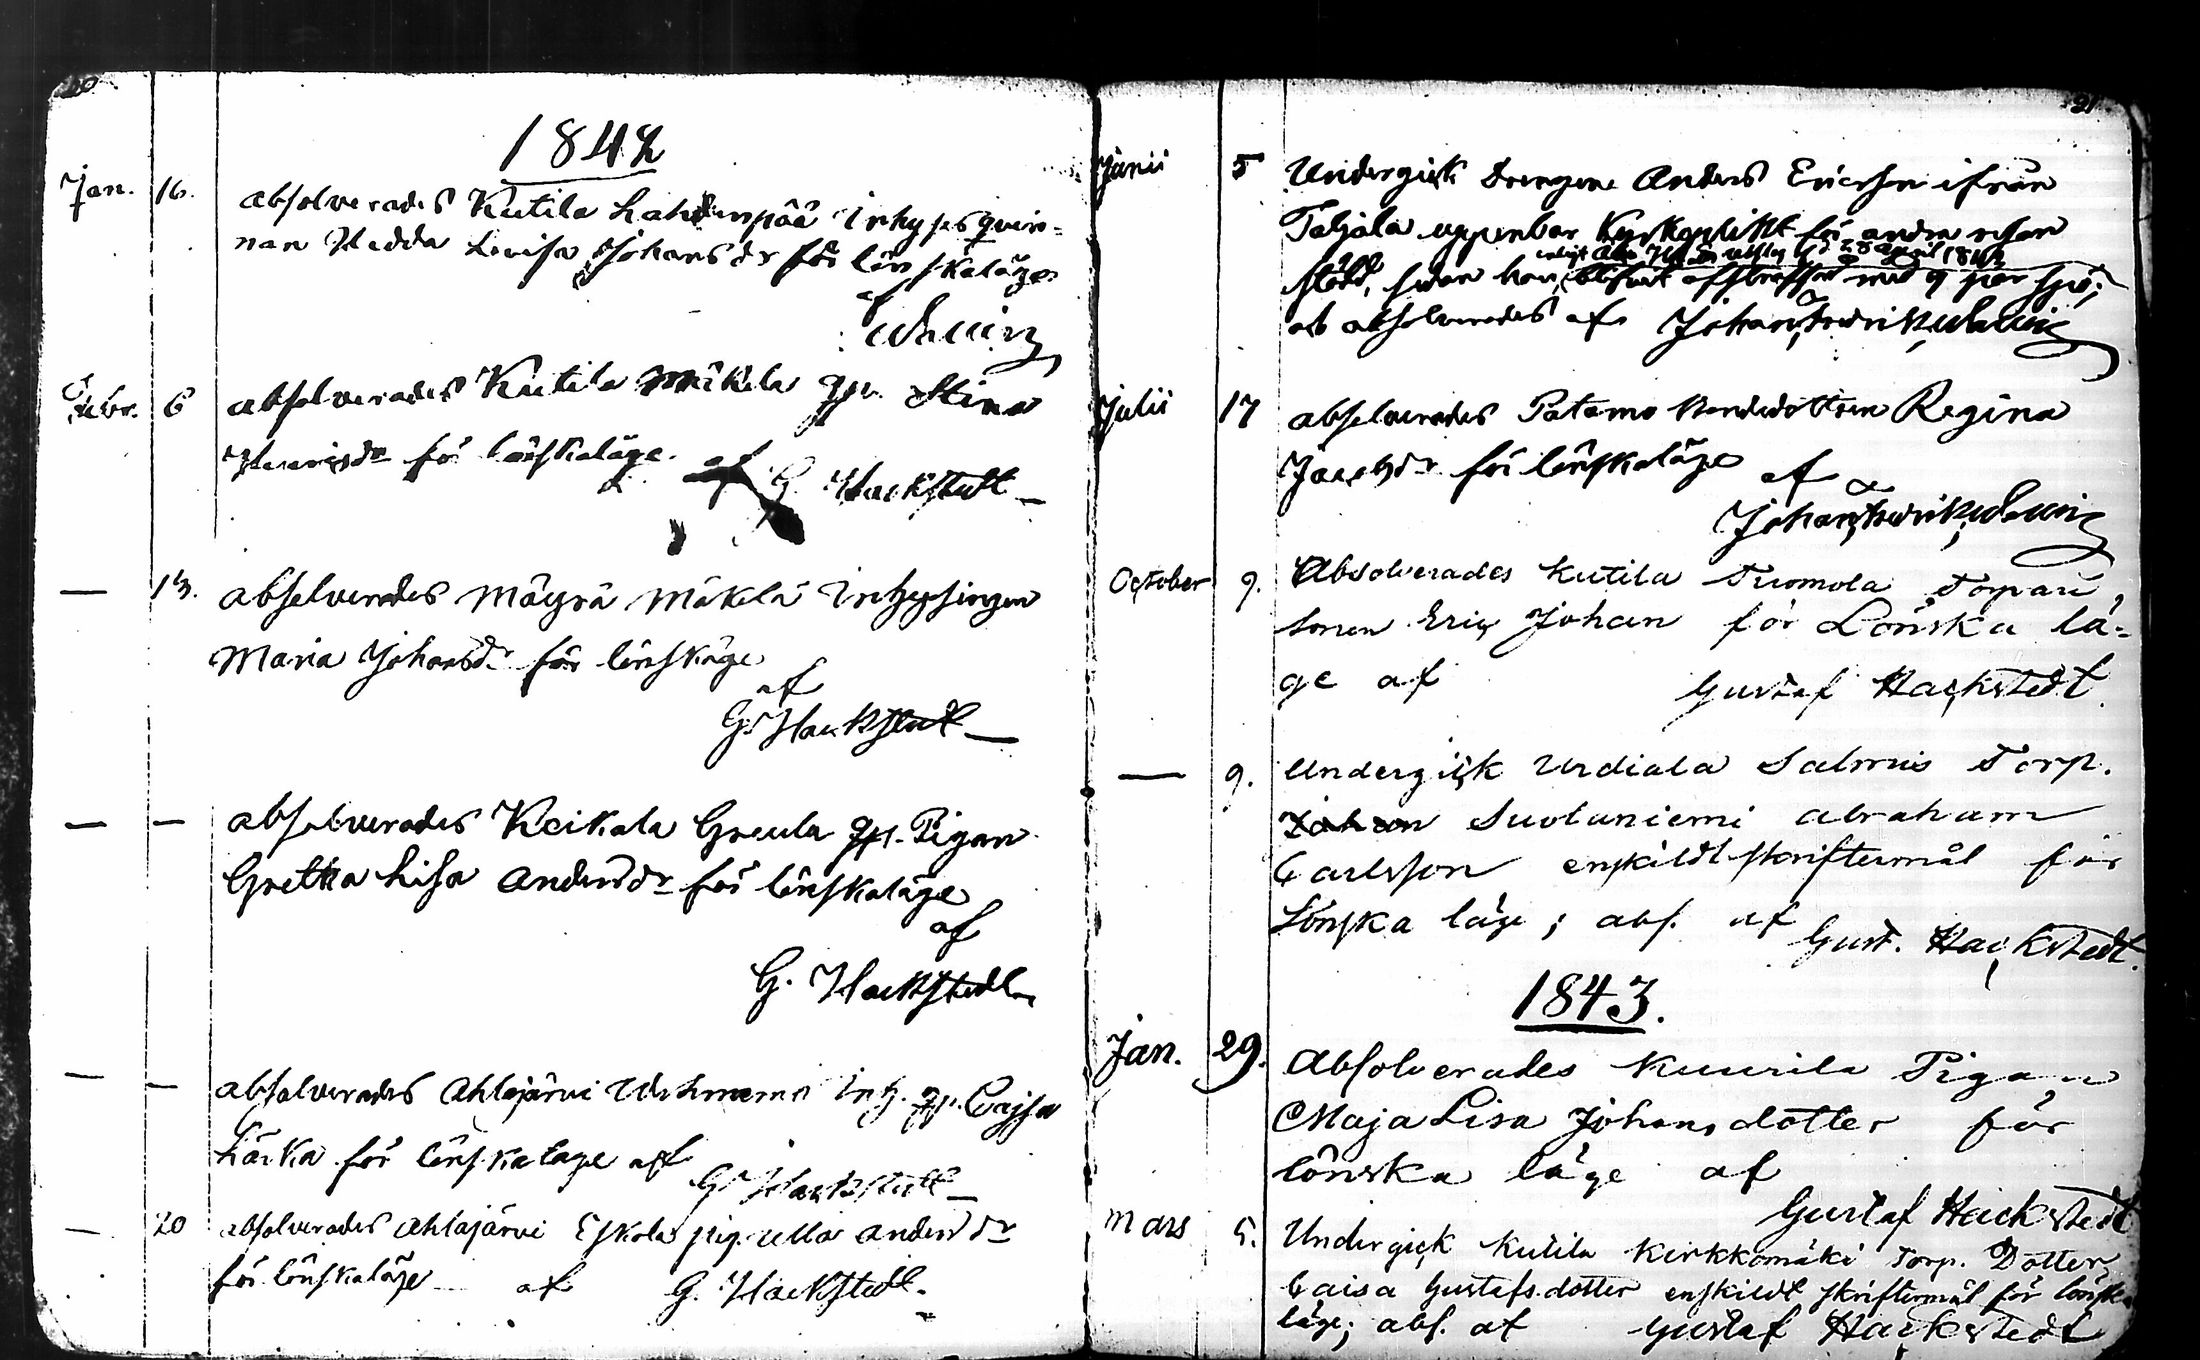 20
1842
Jan. 16. absolverades Kutila Lahdenpää Inhyses qvin-
nan Hedda Lovisa Johans dr för lönskaläge
af
Febr. 6 absolverades Kutila Mäkelä Stina
Henricsdr för lönskaläge. af G. Hackstedt
— 13. absolverades Mäyrä Mäkelä Inhysingen
Maria Johansdr för lönskäge
af
G. Hackstedt
— — absolverades Keikala Greula Pigan
Gretha Lisa Andersdr för lönskaläge
af
G. Hackstedt
— — absolverades Ahlajärvi Inh. Cajsa
för lönskaläge af
G. Hackstedt
— 20 absolverades Ahlajärvi Eskola pig. Ulla Andersdr
för lönskaläge af G. Hackstedt.
21
Junii 5 Undergick Drengen Anders Ericsson ifrån
Taljala uppenbar Kyrkoplikt för andra resan
enligt Åbo 28 April 1842
stöld, sedan han blifvit afstraffad med 9 par spö;
och absolverades af Johan Fredrik
Julii 17 absolverades Patamo Bondedottren Regina
Jacobsdr för lönskaläge af
Johan Fredrik
October 9. Absolverades Kutila Tuomola Torpare
sonen Eric Johan för Lönska lä-
ge af Gustaf Hackstedt.
— 9. Undergick Urdiala Salmis Torp.
Johan Suoluniemi Abraham
Carlsson enskildt skriftermål för
Lönska läge; abs. af Gust. Hackstedt.
1843.
Jan. 29. Absolverades Kuurila Pigan
Maja Lisa Johansdotter för
lönska läge af
Gustaf Hackstedt
Mars 5. Undergick Kutila Kirkkomäki Torp. Dotter
Caisa Gustafsdotter enskildt skriftermål för lönska
läge; abs. af Gustaf Hackstedt